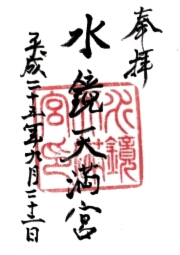 奉拝
水鏡天満宮
平成二十五年九月二十二日
水鏡
天満
宮印